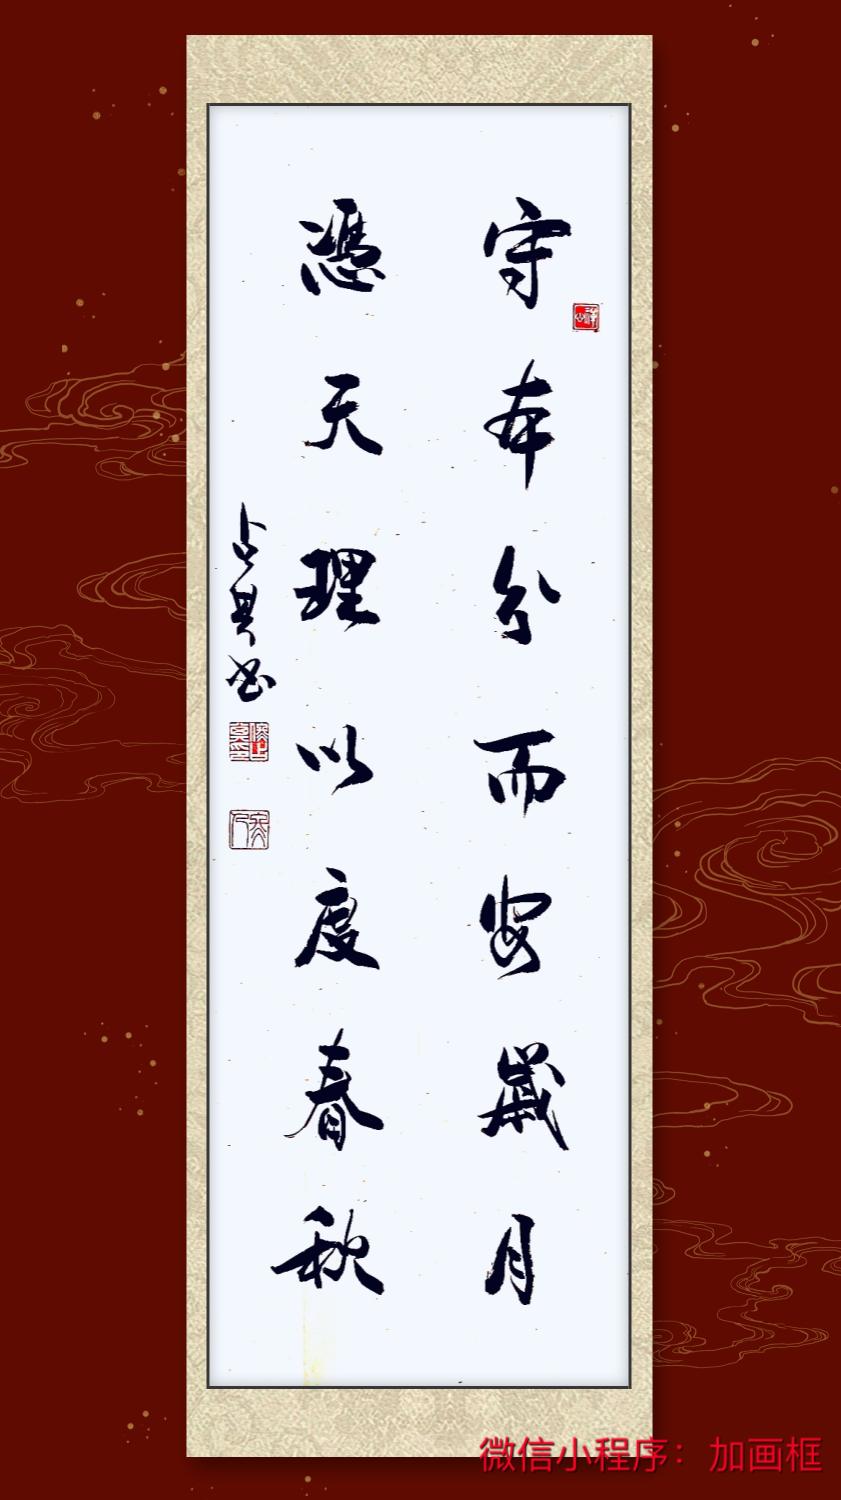 守本分而安歲月
憑天理以度春秋
占其书
微信小程序：加画框